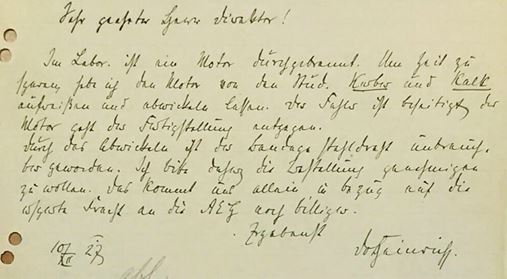 Sehr geehrter Herr Direktor!
Im Labor. ist ein Motor durchgebrannt. Um Zeit zu
sparen habe ich den Motor von den Stud. Kerber und Kalk
aufreißen und abwickeln lassen. Der Fehler ist beseitigt, der
Motor geht der Fertigstellung entgegen.
Durch das Abwickeln ist der Bandage Stahldraht unbrauch-
bar geworden. Ich bitte daher die Bestellung genehmigen
zu wollen. Das kommt uns allein in bezug auf die
Fracht an die AEG noch billiger.
Ergebenst
10/XII 27